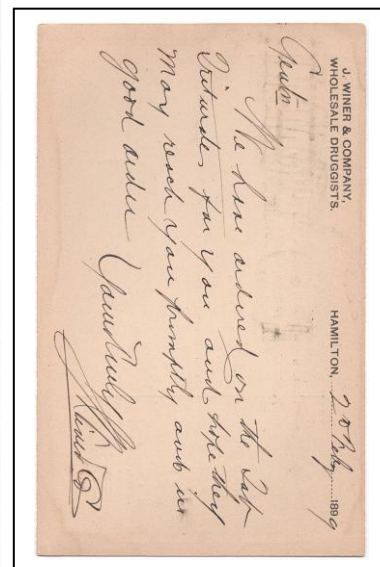 J. WINER & COMPANY,
WHOLESALE DRUGGISTS.
HAMILTON, 20 Feby 1899
Gents
We have ordered on the Tab
Triturates for you and hope they
may reach you promptly and in
good order Yours truly
J Winer & Co